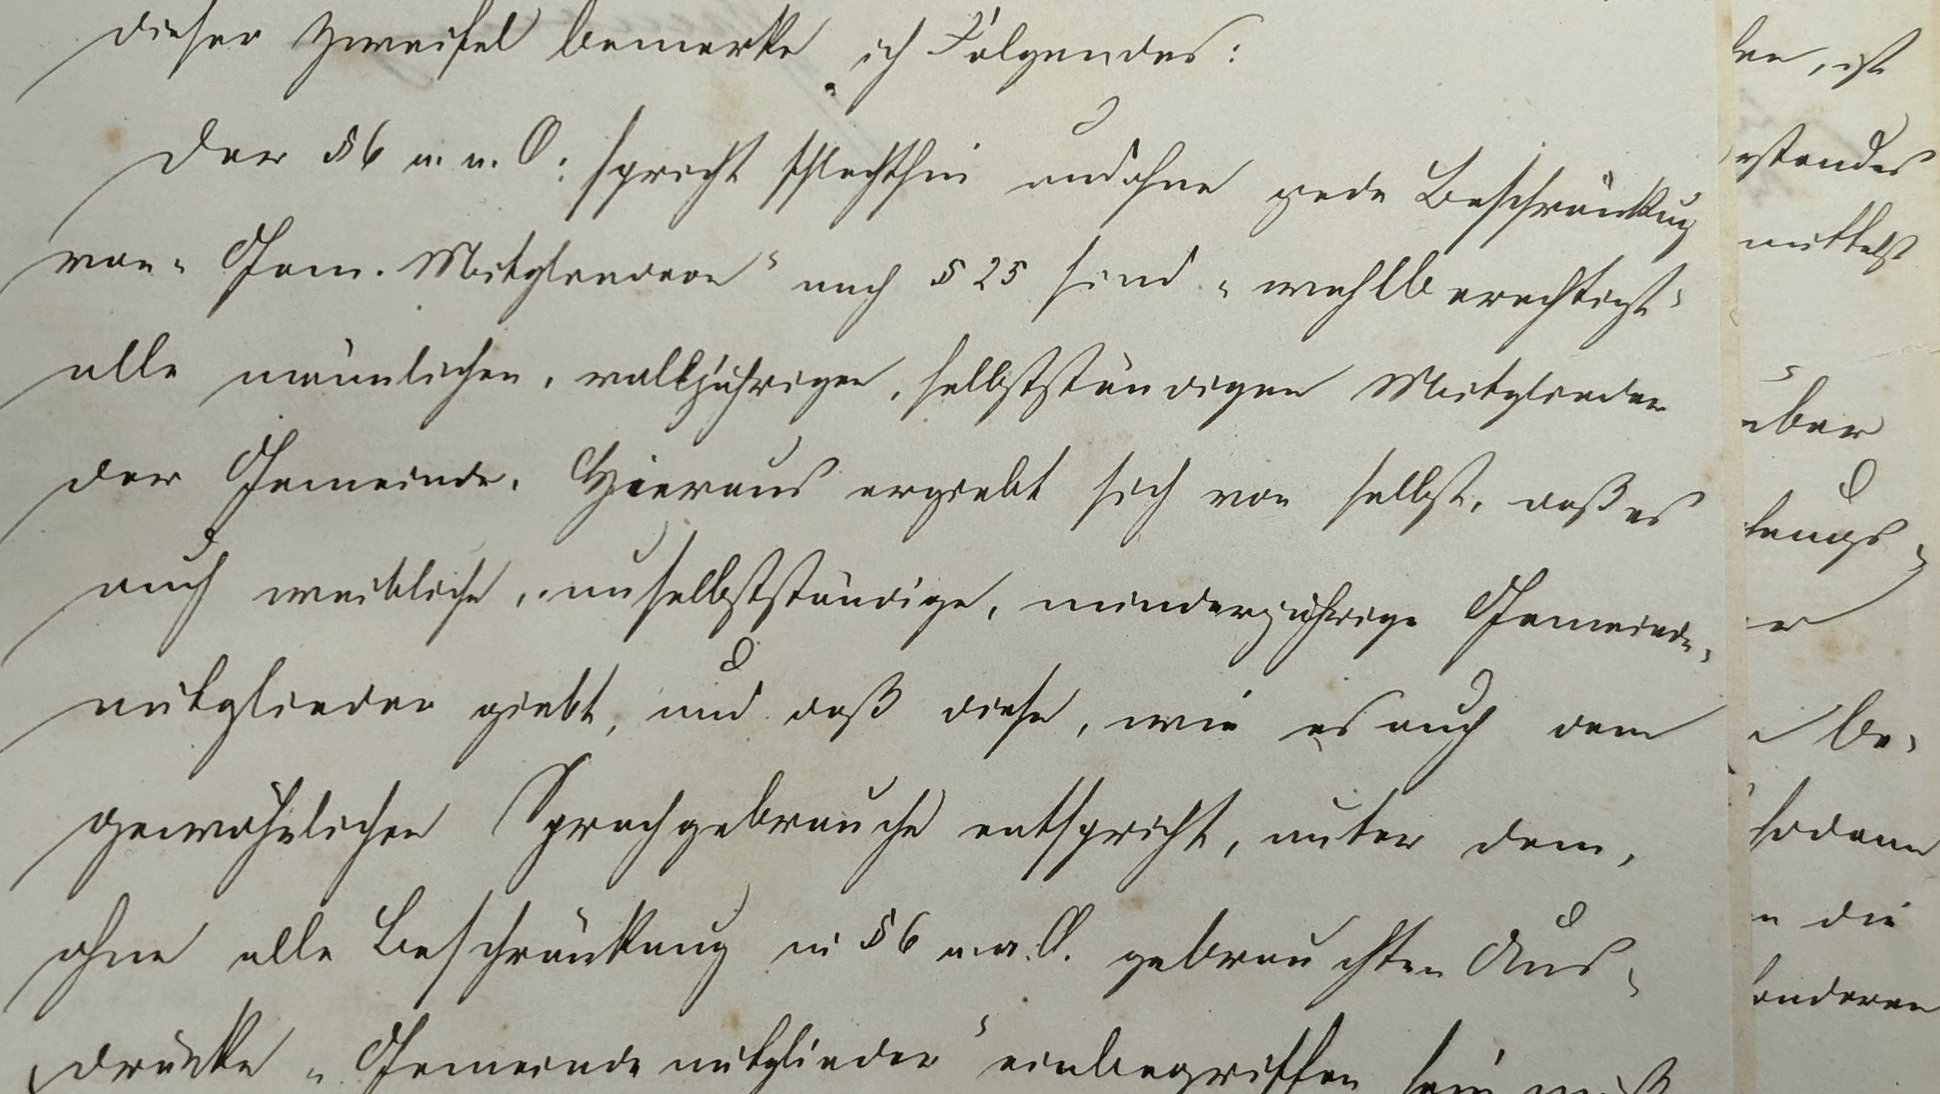 dieser Zweifel bemerke ich Folgendes:
Der § 6 a. a. O: spricht schlechthin und ohne jede Beschränkung
von „Gem. Mitgliedern" nach § 25 sind „wahlberechtigt"
alle männlichen, volljährigen, selbstständigen Mitglieder
der Gemeinde. Hieraus ergiebt sich von selbst, daß es
auch weibliche, unselbstständige, minderjährige Gemeinde-
mitglieder giebt, und daß diese, wie es auch dem
gewöhnlichen Sprachgebrauche entspricht, unter dem,
ohne alle Beschränkung in § 6 a. a. O. gebrauchten Aus-
drucke „Gemeindemitglieder" einbegriffen sein muß
, ist
standes
mittelst
über
r
Be-
sodann
die
anderen